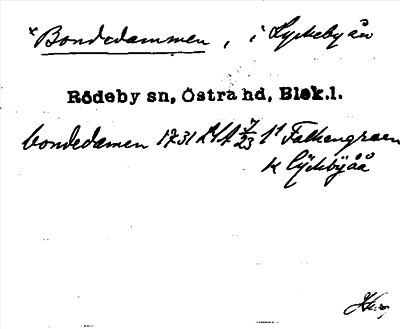 × Bondedammen, i Lyckebyån
Rödeby sn, Östra hd, Blek.l.
bondedamen 1731 LA 7/23 11 Falkengreen
K Lyckbÿåå